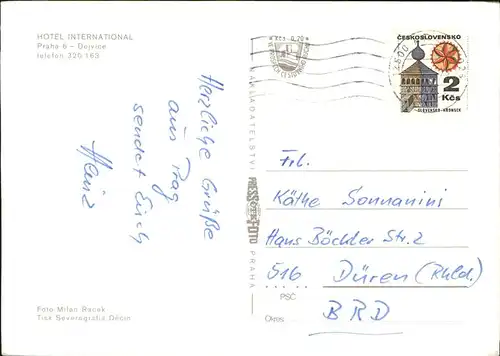 HOTEL INTERNATIONAL
Praha 6 - Dejvice
telefon 320 163
Herzliche Grüße
aus Prag
sendet Euch
Heinz
Foto Milan Racek
Tisk Severografia Děčín
NAKLADATELSTVÍ
PRESSFOTO
PRAHA
Kčs 0,70
ČESKOSLOVENSKO
2
Kčs
SLOVENSKO-HRONSEK
Frl.
Käthe Sonnanini
Hans Böckler Str. 2
516 Düren (Rhld.)
PSČ
Okres BRD